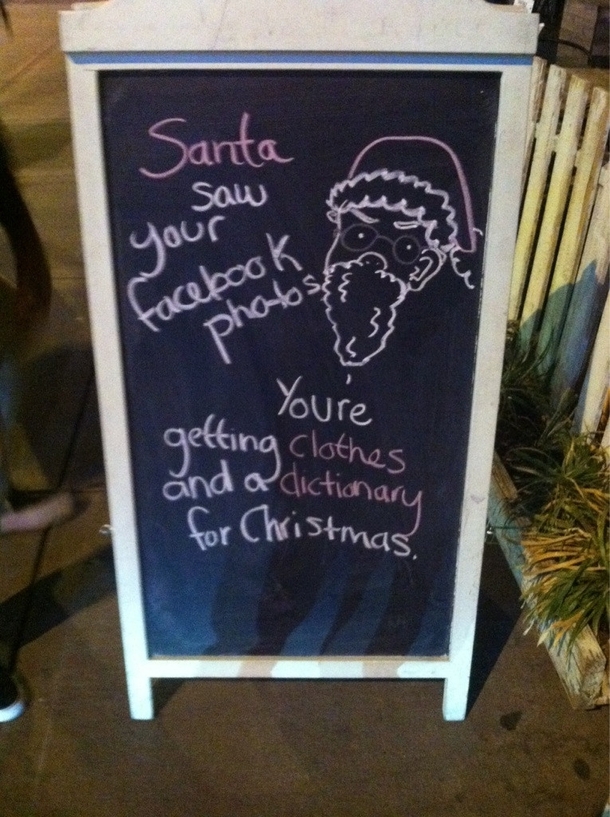 Santa
saw
your
facebook
photos
Youre
getting clothes
and a dictionary
for Christmas.